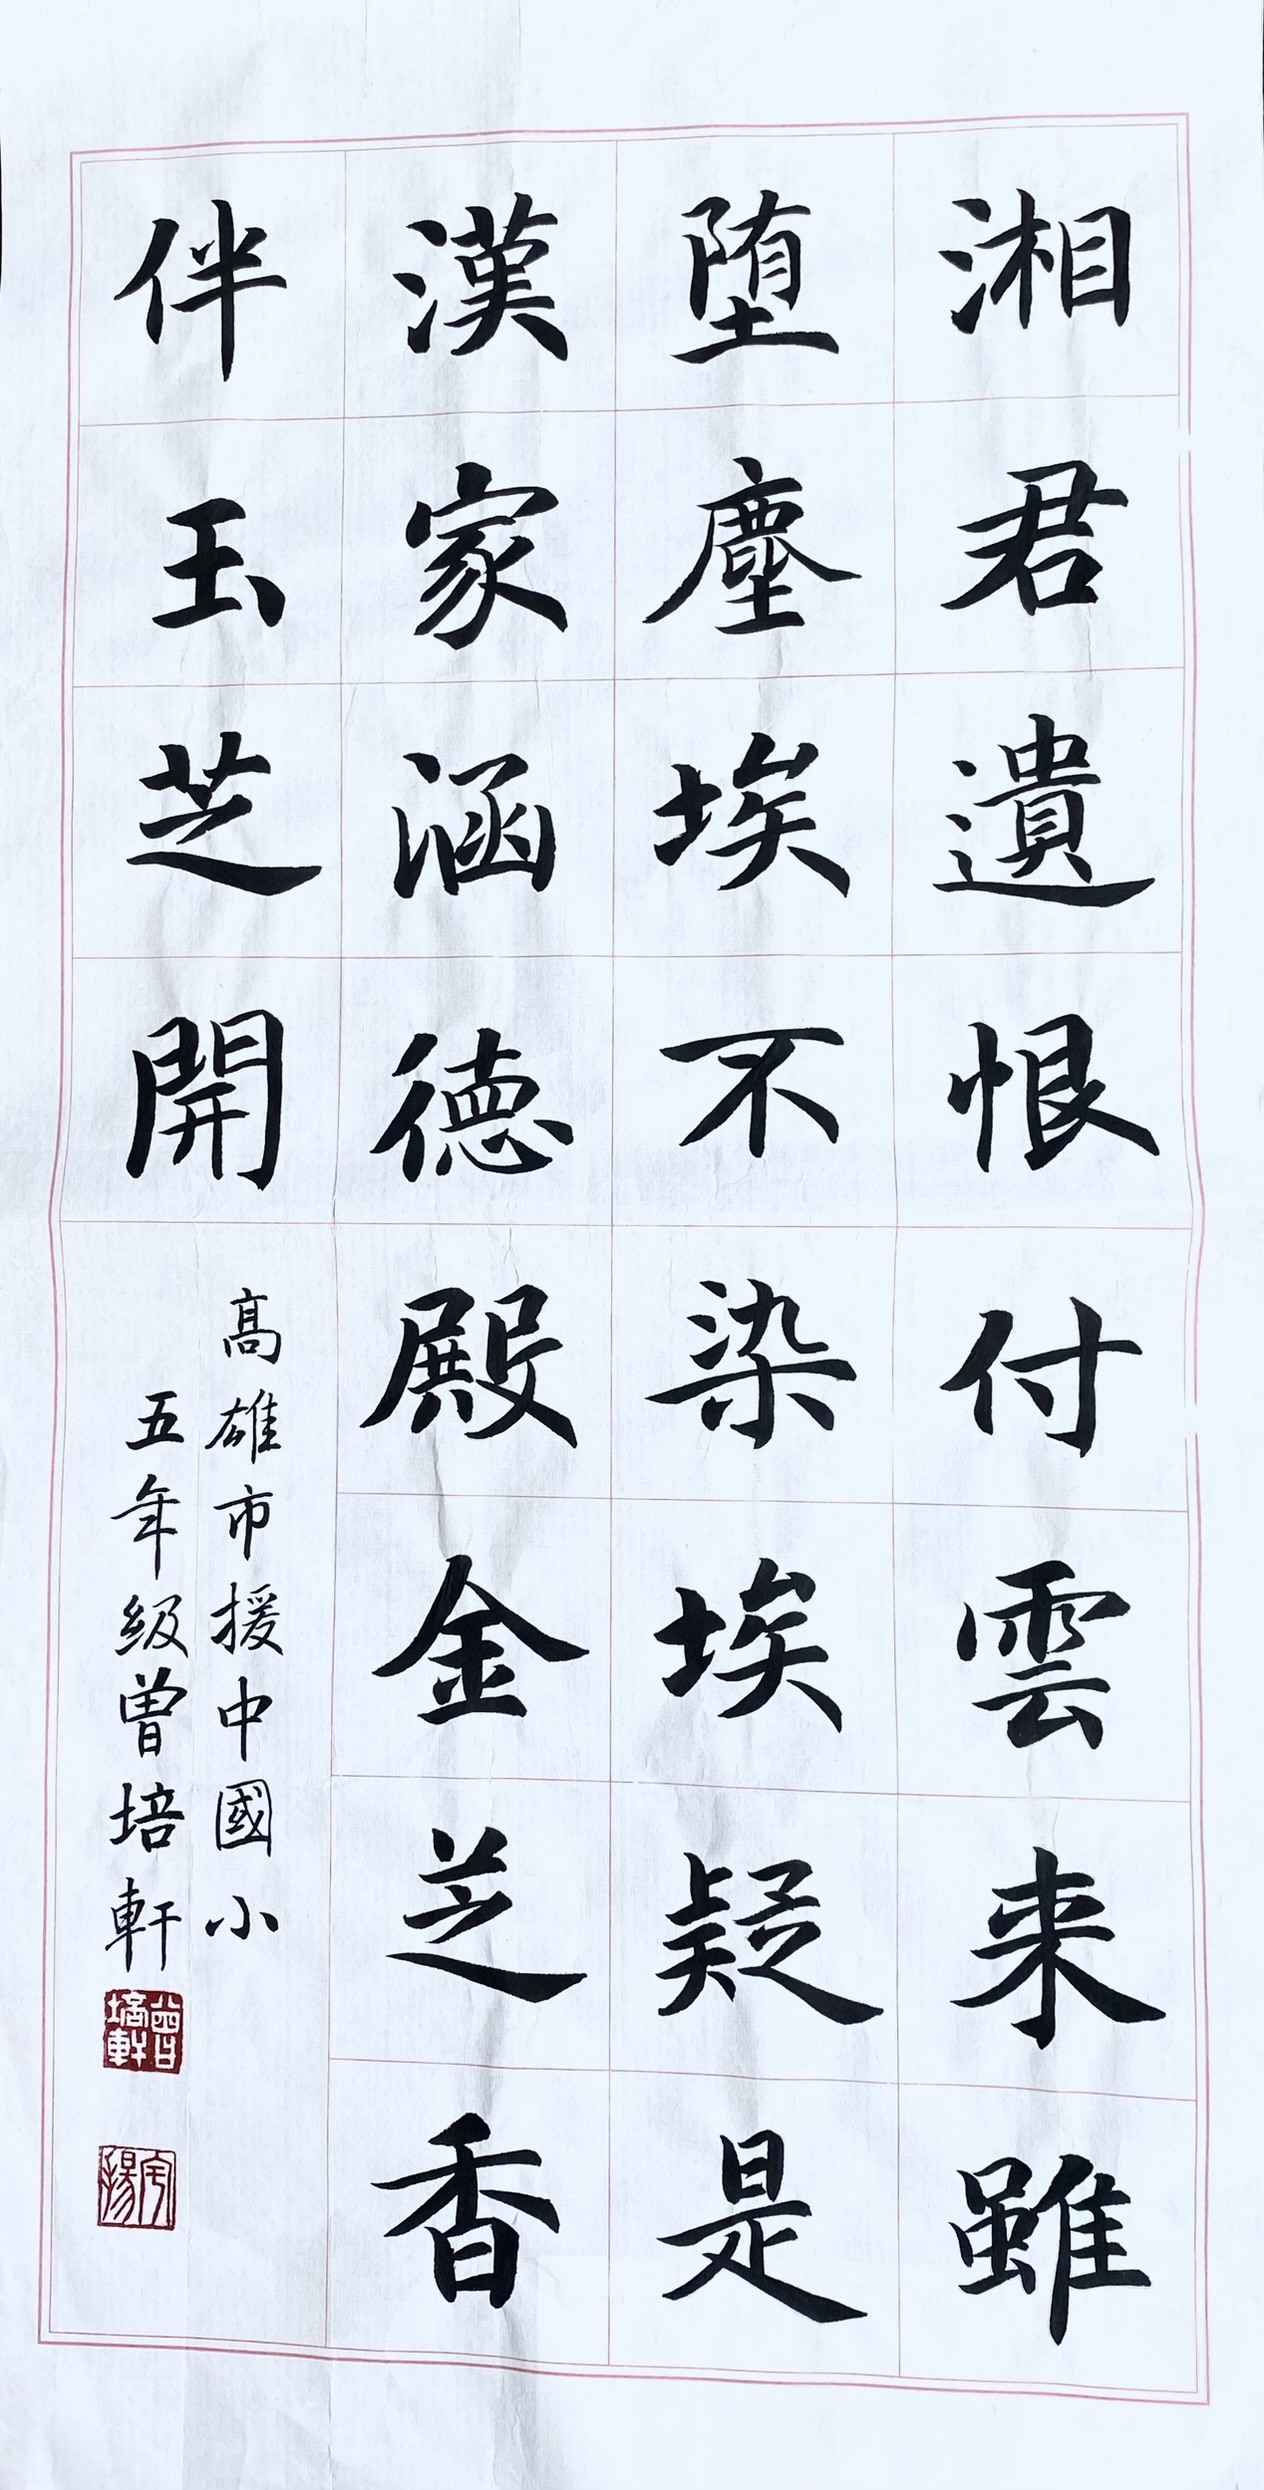 湘君遺恨付雲来雖
堕塵埃不染埃疑是
漢家涵德殿金芝香
伴玉芝開
高雄市援中國小
五年級曾培軒